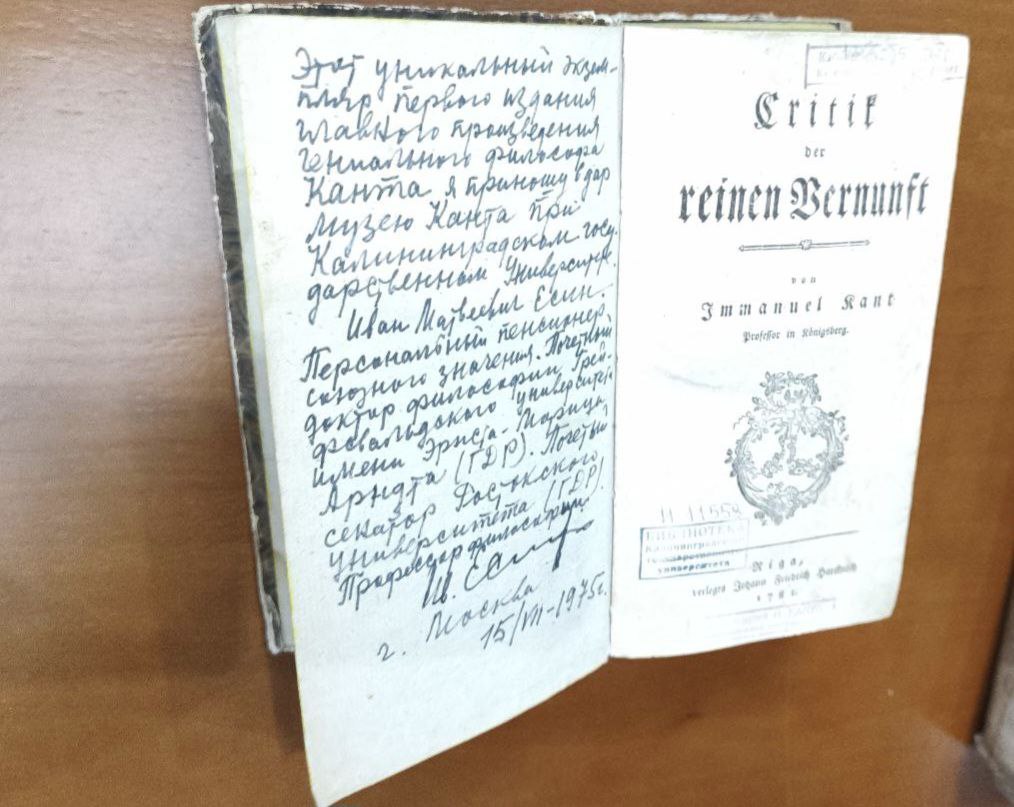 Этот уникальный экзем-
пляр первого издания
главного произведения
гениального философа
Канта, я приношу в дар
музею Канта при
Калининградском госу-
дарственном Университете.
Иван Матвеевич Есин.
Персональный пенсионер
союзного значения. Почетный
доктор философии Грей-
фсвальдского университе.
имени Эрнста-Морица
Арндта (ГДР). Почетый
сенатор Ростокского
университета (ГДР)
Профессор философии
И. Есин
г. Москва
15/VII-1975г.
Critik
der
reinen Vernunft
von
Immanuel Kant
Professor in Königsberg.
И 11558
БИБЛИОТЕКА
Калининградского
государственного
университета
Riga,
verlegts Johann Friedrich Hartknoch
1781.